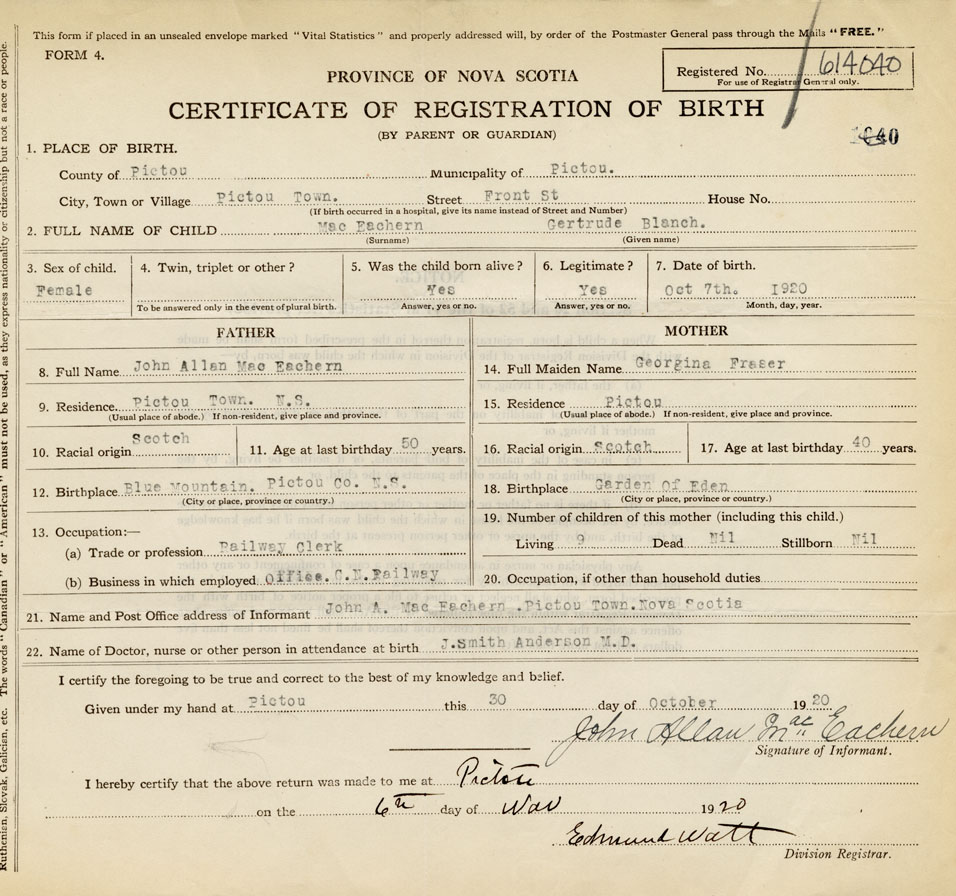 This form if placed in an unsealed envelope marked "Vital Statistics" and properly addressed will, by order of the Postmaster General pass through the Mails "FREE."
FORM 4.
Registered No. 614040
For use of Registrar General only.
PROVINCE OF NOVA SCOTIA
CERTIFICATE OF REGISTRATION OF BIRTH
(BY PARENT OR GUARDIAN)
40
1. PLACE OF BIRTH.
County of Pictou Municipality of Pictou.
City, Town or Village Pictou Town. Street Front St House No.
(If birth occurred in a hospital, give its name instead of Street and Number)
2. FULL NAME OF CHILD Mac Eachern Gertrude Blanch.
(Surname) (Given name)
3. Sex of child. 4. Twin, triplet or other? 5. Was the child born alive? 6. Legitimate? 7. Date of birth.
Female Yes Yes Oct 7th. 1920
To be answered only in the event of plural birth. Answer, yes or no. Answer, yes or no. Month, day, year.
FATHER
8. Full Name John Allan Mac Eachern
9. Residence. Pictou Town. N.S.
(Usual place of abode.) If non-resident, give place and province.
10. Racial origin Scotch 11. Age at last birthday 50 years.
12. Birthplace Blue Mountain. Pictou Co. N.S.
(City or place, province or country.)
13. Occupation:—
(a) Trade or profession Railway Clerk
(b) Business in which employed Office. C.N.Railway
MOTHER
14. Full Maiden Name Georgina Fraser
15. Residence Pictou
(Usual place of abode.) If non-resident, give place and province.
16. Racial origin Scotch 17. Age at last birthday 40 years.
18. Birthplace Garden Of Eden
(City or place, province or country.)
19. Number of children of this mother (including this child.)
Living 9 Dead Nil Stillborn Nil
20. Occupation, if other than household duties
21. Name and Post Office address of Informant John A. Mac Eachern .Pictou Town.Nova Scotia
22. Name of Doctor, nurse or other person in attendance at birth J.Smith Anderson M.D.
I certify the foregoing to be true and correct to the best of my knowledge and belief.
Given under my hand at Pictou this 30 day of October 1920
John Allan Mac Eachern
Signature of Informant.
I hereby certify that the above return was made to me at Pictou
on the 6th day of Nov 1920
Edmund Watt
Division Registrar.
Ruthenian, Slovak, Galician, etc. The words "Canadian" or "American" must not be used, as they express nationality or citizenship but not a race or people.